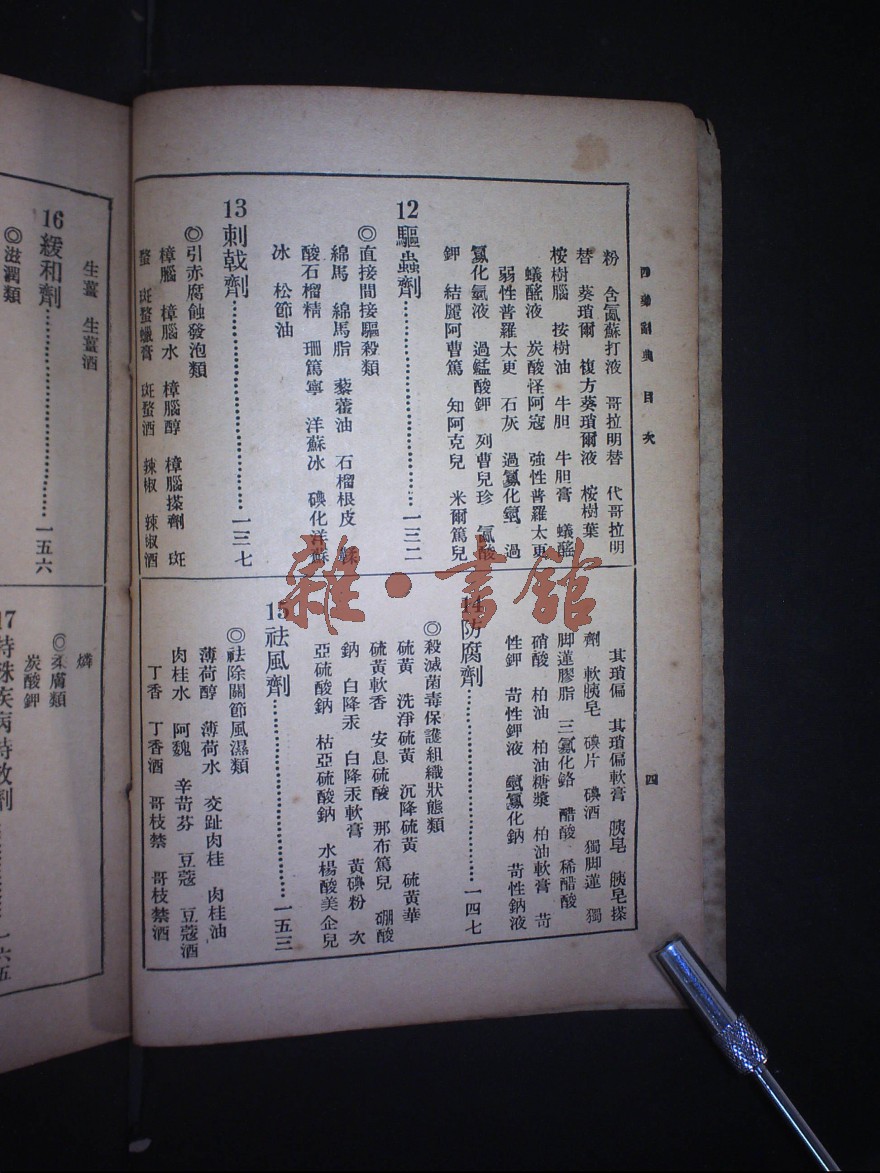 目次
四
粉 含氯蘇打液 哥拉明替 代哥拉明
替 葵瑣爾 複方葵瑣爾液 桉樹葉
桉樹腦 按樹油 牛胆 牛胆膏 蟻醛
蟻醛液 炭酸怪阿寇 強性普羅太更
弱性普羅太更 石灰 過氯化氫 過
氯化氫液 過錳酸鉀 列曹兒珍 氯酸
鉀 結麗阿曹篤 知阿克兒 米爾篤兒
12 驅蟲劑 一三二
◎直接間接驅殺類
綿馬 綿馬脂 藜藿油 石榴根皮
酸石榴精 珊篤寧 洋蘇冰 碘化洋蘇
冰 松節油
13 刺戟劑 一三七
◎引赤腐蝕發泡類
樟腦 樟腦水 樟腦醇 樟腦搽劑 斑
蝥 斑蝥蠟膏 斑蝥酒 辣椒 辣椒酒
其瑣偏 其瑣偏軟膏 胰皂 胰皂搽
劑 軟胰皂 碘片 碘酒 獨脚蓮 獨
脚蓮膠脂 三氯化鉻 醋酸 稀醋酸
硝酸 柏油 柏油糖漿 柏油軟膏 苛
性鉀 苛性鉀液 氫氯化鈉 苛性鈉液
14 防腐劑 一四七
◎殺滅菌毒保護組織狀態類
硫黃 洗淨硫黃 沉降硫黃 硫黃華
硫黃軟香 安息硫酸 那布篤兒 硼酸
鈉 白降汞 白降汞軟膏 黃碘粉 次
亞硫酸鈉 枯亞硫酸鈉 水楊酸美企兒
15 祛風劑 一五三
◎祛除關節風濕類
薄荷醇 薄荷水 交趾肉桂 肉桂油
肉桂水 阿魏 辛苛芬 豆蔻 豆蔻酒
丁香 丁香酒 哥枝禁 哥枝禁酒
生薑 生薑酒
16 緩和劑 一五六
◎滋潤類
燐
◎柔膚類
炭酸鉀
17 特殊疾病特效劑 一六五
雜·書館